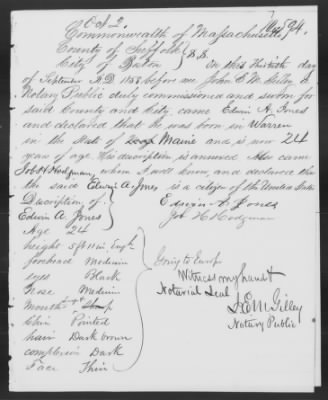 Oct 2.
94.
Commonwealth of Massachusetts
County of Suffolk } S.S.
City of Boston } On this thirtieth day
of September A.D. 1858 before me John E. M. Gilley, a
Notary Public duly commissioned and sworn for
said County and City, came Edwin A. Jones
and declared that he was born in Warren
in the State of Maine and is now 24
years of age. His description is annexed. Also came
Job H Hodgman whom I well know, and declared that
the said Edwin A. Jones is a citizen of the United States
Discription of
Edwin A. Jones
Age 24
height 5 ft 11 in Eng.
forehead Medium
eyes Black
Nose Medium
Mouth
Chin Pointed
hair Dark brown
complexion Dark
Face Thin
Edwin A. Jones
Job H Hodgman
Going to Europe
Witness my hand &
Notarial Seal
J.E.M. Gilley
Notary Public